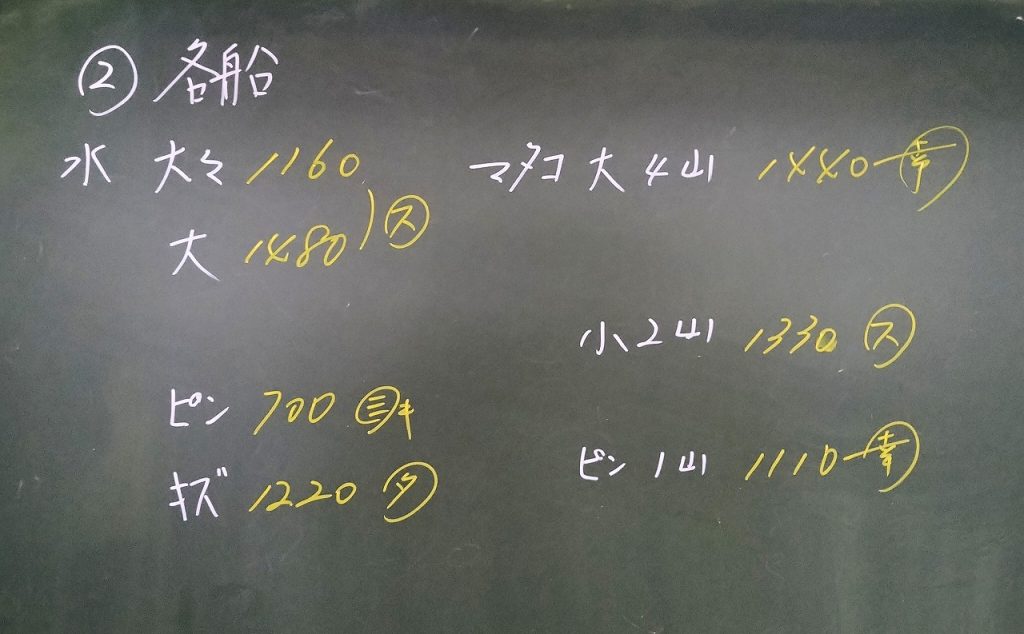 ② 各船
水 大々 1160
大 1480 ㋜
ピン 700 ㊂キ
キズ 1220 ㋟
マダコ 大 4山 1440 幸
小 2山 1330 ㋜
ピン 1山 1110 幸